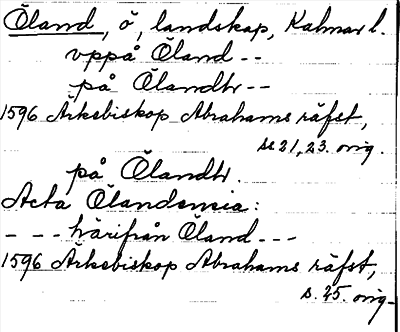 Öland, ö, landskap, Kalmar l.
vppå Öland --
på Ölandh --
1596 Ärkebiskop Abrahams räfst,
ss 21, 23. orig.
på Ölandh.
Acta Ölandensia:
- -- härifrån Öland ---
1596 Ärkebiskop Abrahams räfst,
s. 45. orig -